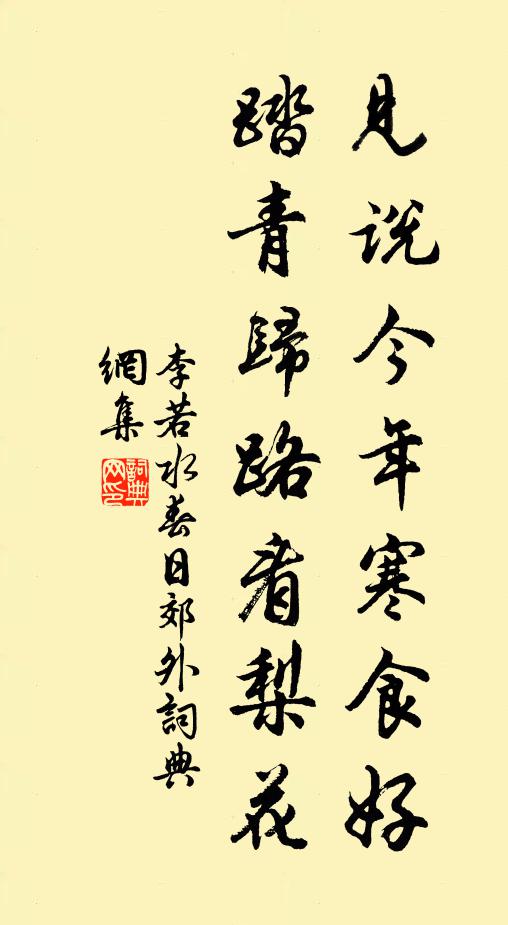 見説今年寒食好
踏青歸路看梨花
李若水春日郊外詞典
網集
詞典網印